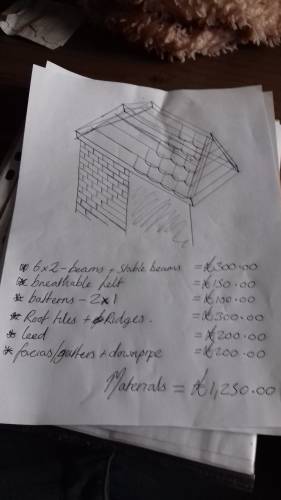 * 6x2-beams + stable beams = £300.00
* breathable felt = £150.00
* batterns - 2x1 = £100.00
* Roof tiles + Ridges. = £300.00
* leed = £200.00
* facias/gutters + downpipe = £200.00
Materials = £1,250.00